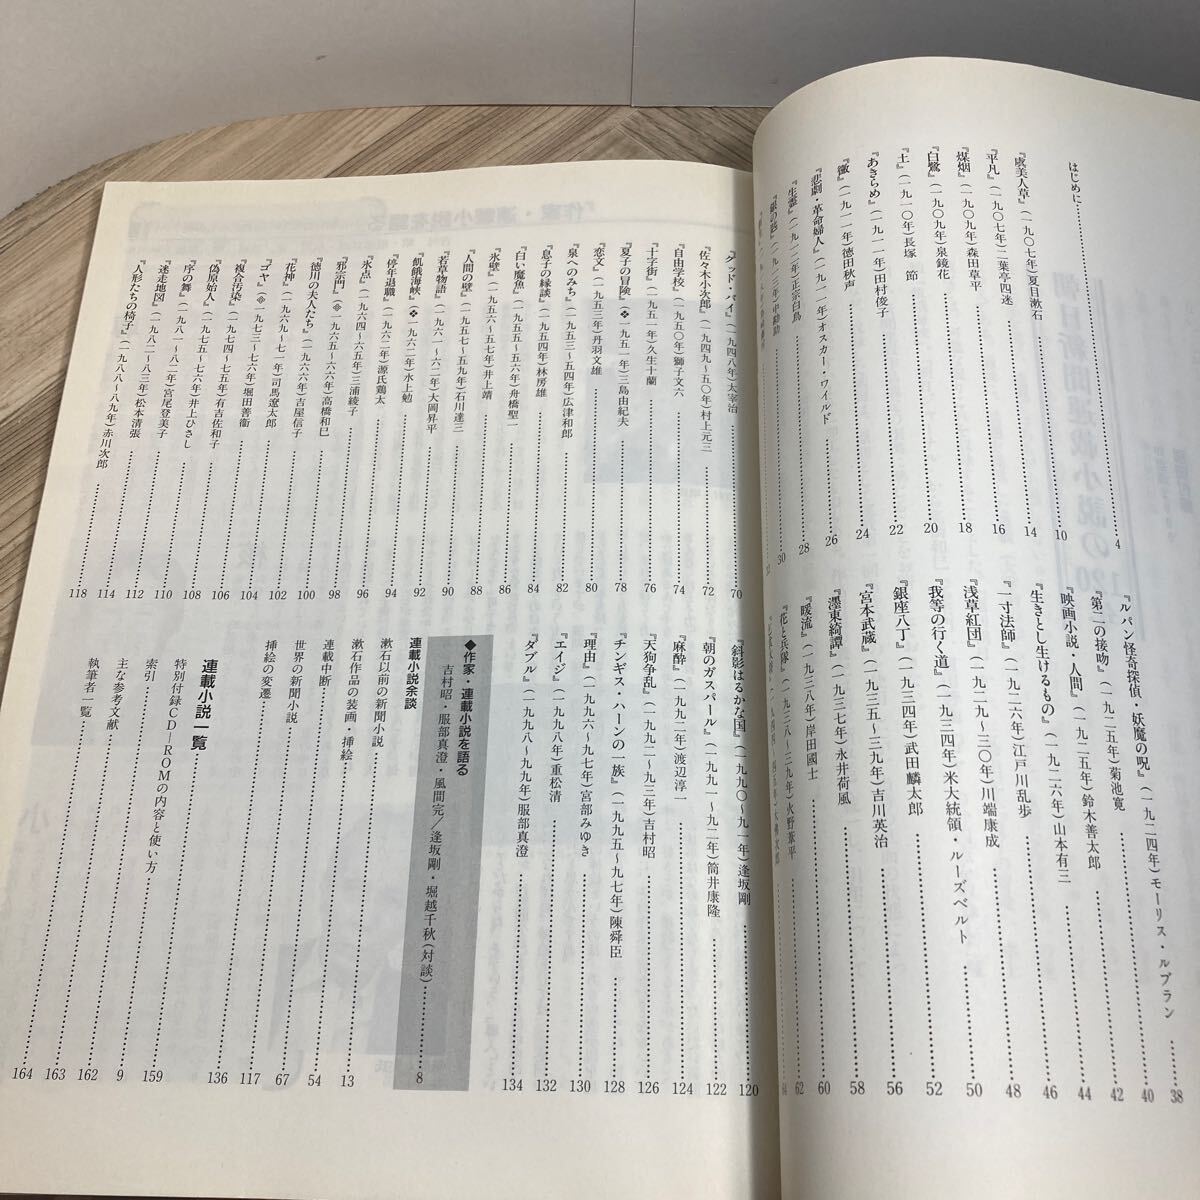 はじめに……4
『虞美人草』(一九〇七年)夏目漱石……10
『平凡』(一九〇七年)二葉亭四迷……14
『煤烟』(一九〇九年)森田草平……16
『白鷺』(一九〇九年)泉鏡花……18
『土』(一九一〇年)長塚 節……20
『あきらめ』(一九一一年)田村俊子……22
『黴』(一九一一年)徳田秋声……24
『悲劇・革命婦人』(一九一一年)オスカー・ワイルド……26
『生霊』(一九一二年)正宗白鳥……28
『銀の匙』(一九一三年)中勘助……30
32
『ルパン怪奇探偵・妖魔の呪』(一九二四年)モーリス・ルブラン……38
『第二の接吻』(一九二五年)菊池寛……40
『映画小説・人間』(一九二五年)鈴木善太郎……42
『生きとし生けるもの』(一九二六年)山本有三……44
『一寸法師』(一九二六年)江戸川乱歩……46
『浅草紅団』(一九二九〜三〇年)川端康成……48
『我等の行く道』(一九三四年)米大統領・ルーズベルト……50
『銀座八丁』(一九三四年)武田麟太郎……52
『宮本武蔵』(一九三五〜三九年)吉川英治……56
『濹東綺譚』(一九三七年)永井荷風……58
『暖流』(一九三八年)岸田國士……60
『花と兵隊』(一九三八〜三九年)火野葦平……62
64
『グッド・バイ』(一九四八年)太宰治……70
『佐々木小次郎』(一九四九〜五〇年)村上元三……72
『自由学校』(一九五〇年)獅子文六……74
『十字街』(一九五一年)久生十蘭……76
『夏子の冒険』(※一九五一年)三島由紀夫……78
『恋文』(一九五三年)丹羽文雄……80
『泉へのみち』(一九五三〜五四年)広津和郎……82
『息子の縁談』(一九五四年)林房雄……84
『白い魔魚』(一九五五〜五六年)舟橋聖一……86
『氷壁』(一九五六〜五七年)井上靖……88
『人間の壁』(一九五七〜五九年)石川達三……90
『若草物語』(一九六一〜六二年)大岡昇平……92
『飢餓海峡』(※一九六二年)水上勉……94
『停年退職』(一九六二年)源氏鶏太……96
『氷点』(一九六四〜六五年)三浦綾子……98
『邪宗門』(※一九六五〜六六年)高橋和巳……100
『徳川の夫人たち』(一九六六年)吉屋信子……102
『花神』(一九六九〜七一年)司馬遼太郎……104
『ゴヤ』(※一九七三〜七六年)堀田善衞……106
『複合汚染』(一九七四〜七五年)有吉佐和子……108
『偽原始人』(一九七五〜七六年)井上ひさし……110
『序の舞』(一九八一〜八二年)宮尾登美子……112
『迷走地図』(一九八二〜八三年)松本清張……114
『人形たちの椅子』(一九八八〜八九年)赤川次郎……118
『斜影はるかな国』(一九九〇〜九一年)逢坂剛……120
『朝のガスパール』(一九九一〜九二年)筒井康隆……122
『麻酔』(一九九二年)渡辺淳一……124
『天狗争乱』(一九九二〜九三年)吉村昭……126
『チンギス・ハーンの一族』(一九九五〜九七年)陳舜臣……128
『理由』(一九九六〜九七年)宮部みゆき……130
『エイジ』(一九九八年)重松清……132
『ダブル』(一九九八〜九九年)服部真澄……134
◆作家・連載小説を語る
吉村昭・服部真澄・風間完/逢坂剛・堀越千秋(対談)……8
連載小説余談
漱石以前の新聞小説……13
漱石作品の装画・挿絵……54
連載中断……67
世界の新聞小説……117
挿絵の変遷……136
連載小説一覧……159
特別付録CD—ROMの内容と使い方
索引……9
主な参考文献……162
執筆者一覧……163
164